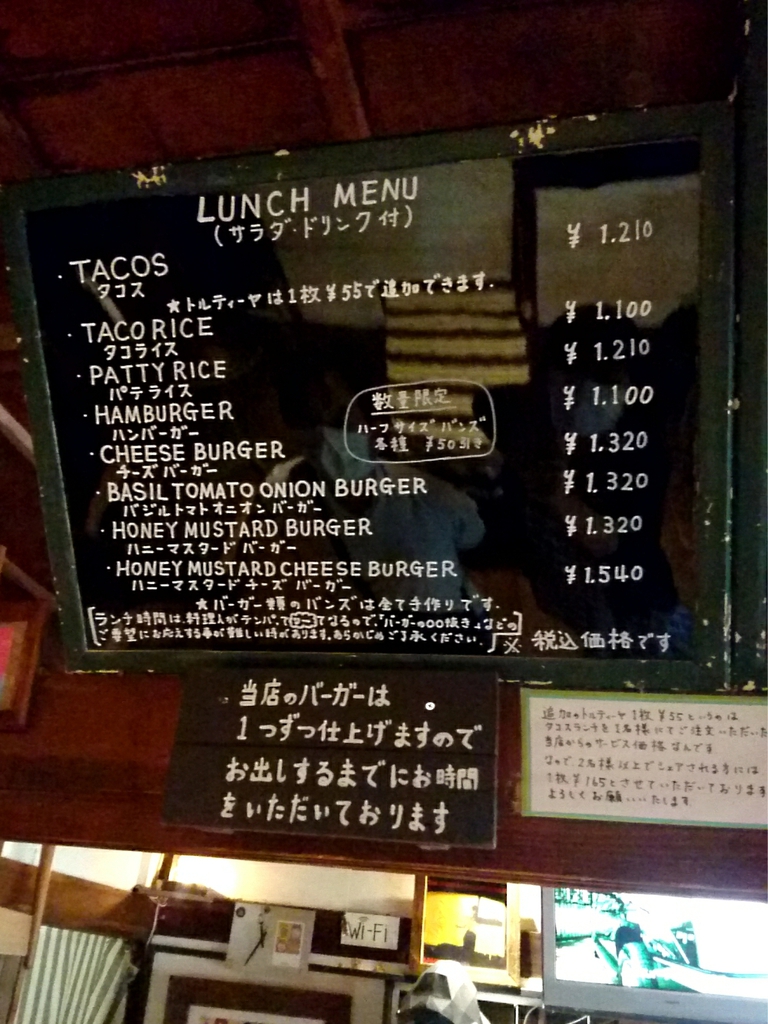 LUNCH MENU
(サラダ・ドリンク付)
・TACOS ¥1.210
タコス
★トルティーヤは1枚¥55で追加できます.
・TACO RICE ¥1.100
タコライス
・PATTY RICE ¥1.210
パテライス
・HAMBURGER ¥1.100
ハンバーガー
数量限定
ハーフサイズバンズ
各種 ¥50引き
・CHEESE BURGER ¥1.320
チーズバーガー
・BASIL TOMATO ONION BURGER ¥1.320
バジルトマトオニオンバーガー
・HONEY MUSTARD BURGER ¥1.320
ハニーマスタードバーガー
・HONEY MUSTARD CHEESE BURGER ¥1.540
ハニーマスタードチーズバーガー
★バーガー類のバンズは全て手作りです.
ランチ時間は、料理人がテンパってなるので、「バーガーの〇〇抜き」などの
ご要望にお応えする事が難しい時があります。あらかじめご了承ください.
※ 税込価格です
当店のバーガーは
1つずつ仕上げますので
お出しするまでにお時間
をいただいております
追加のトルティーヤ1枚¥55というのは
タコスランチを1名様にてご注文いただいた
当店からのサービス価格なんです
なので、2名様以上でシェアされる方には
1枚¥165とさせていただいております
よろしくお願いいたします
WI-FI